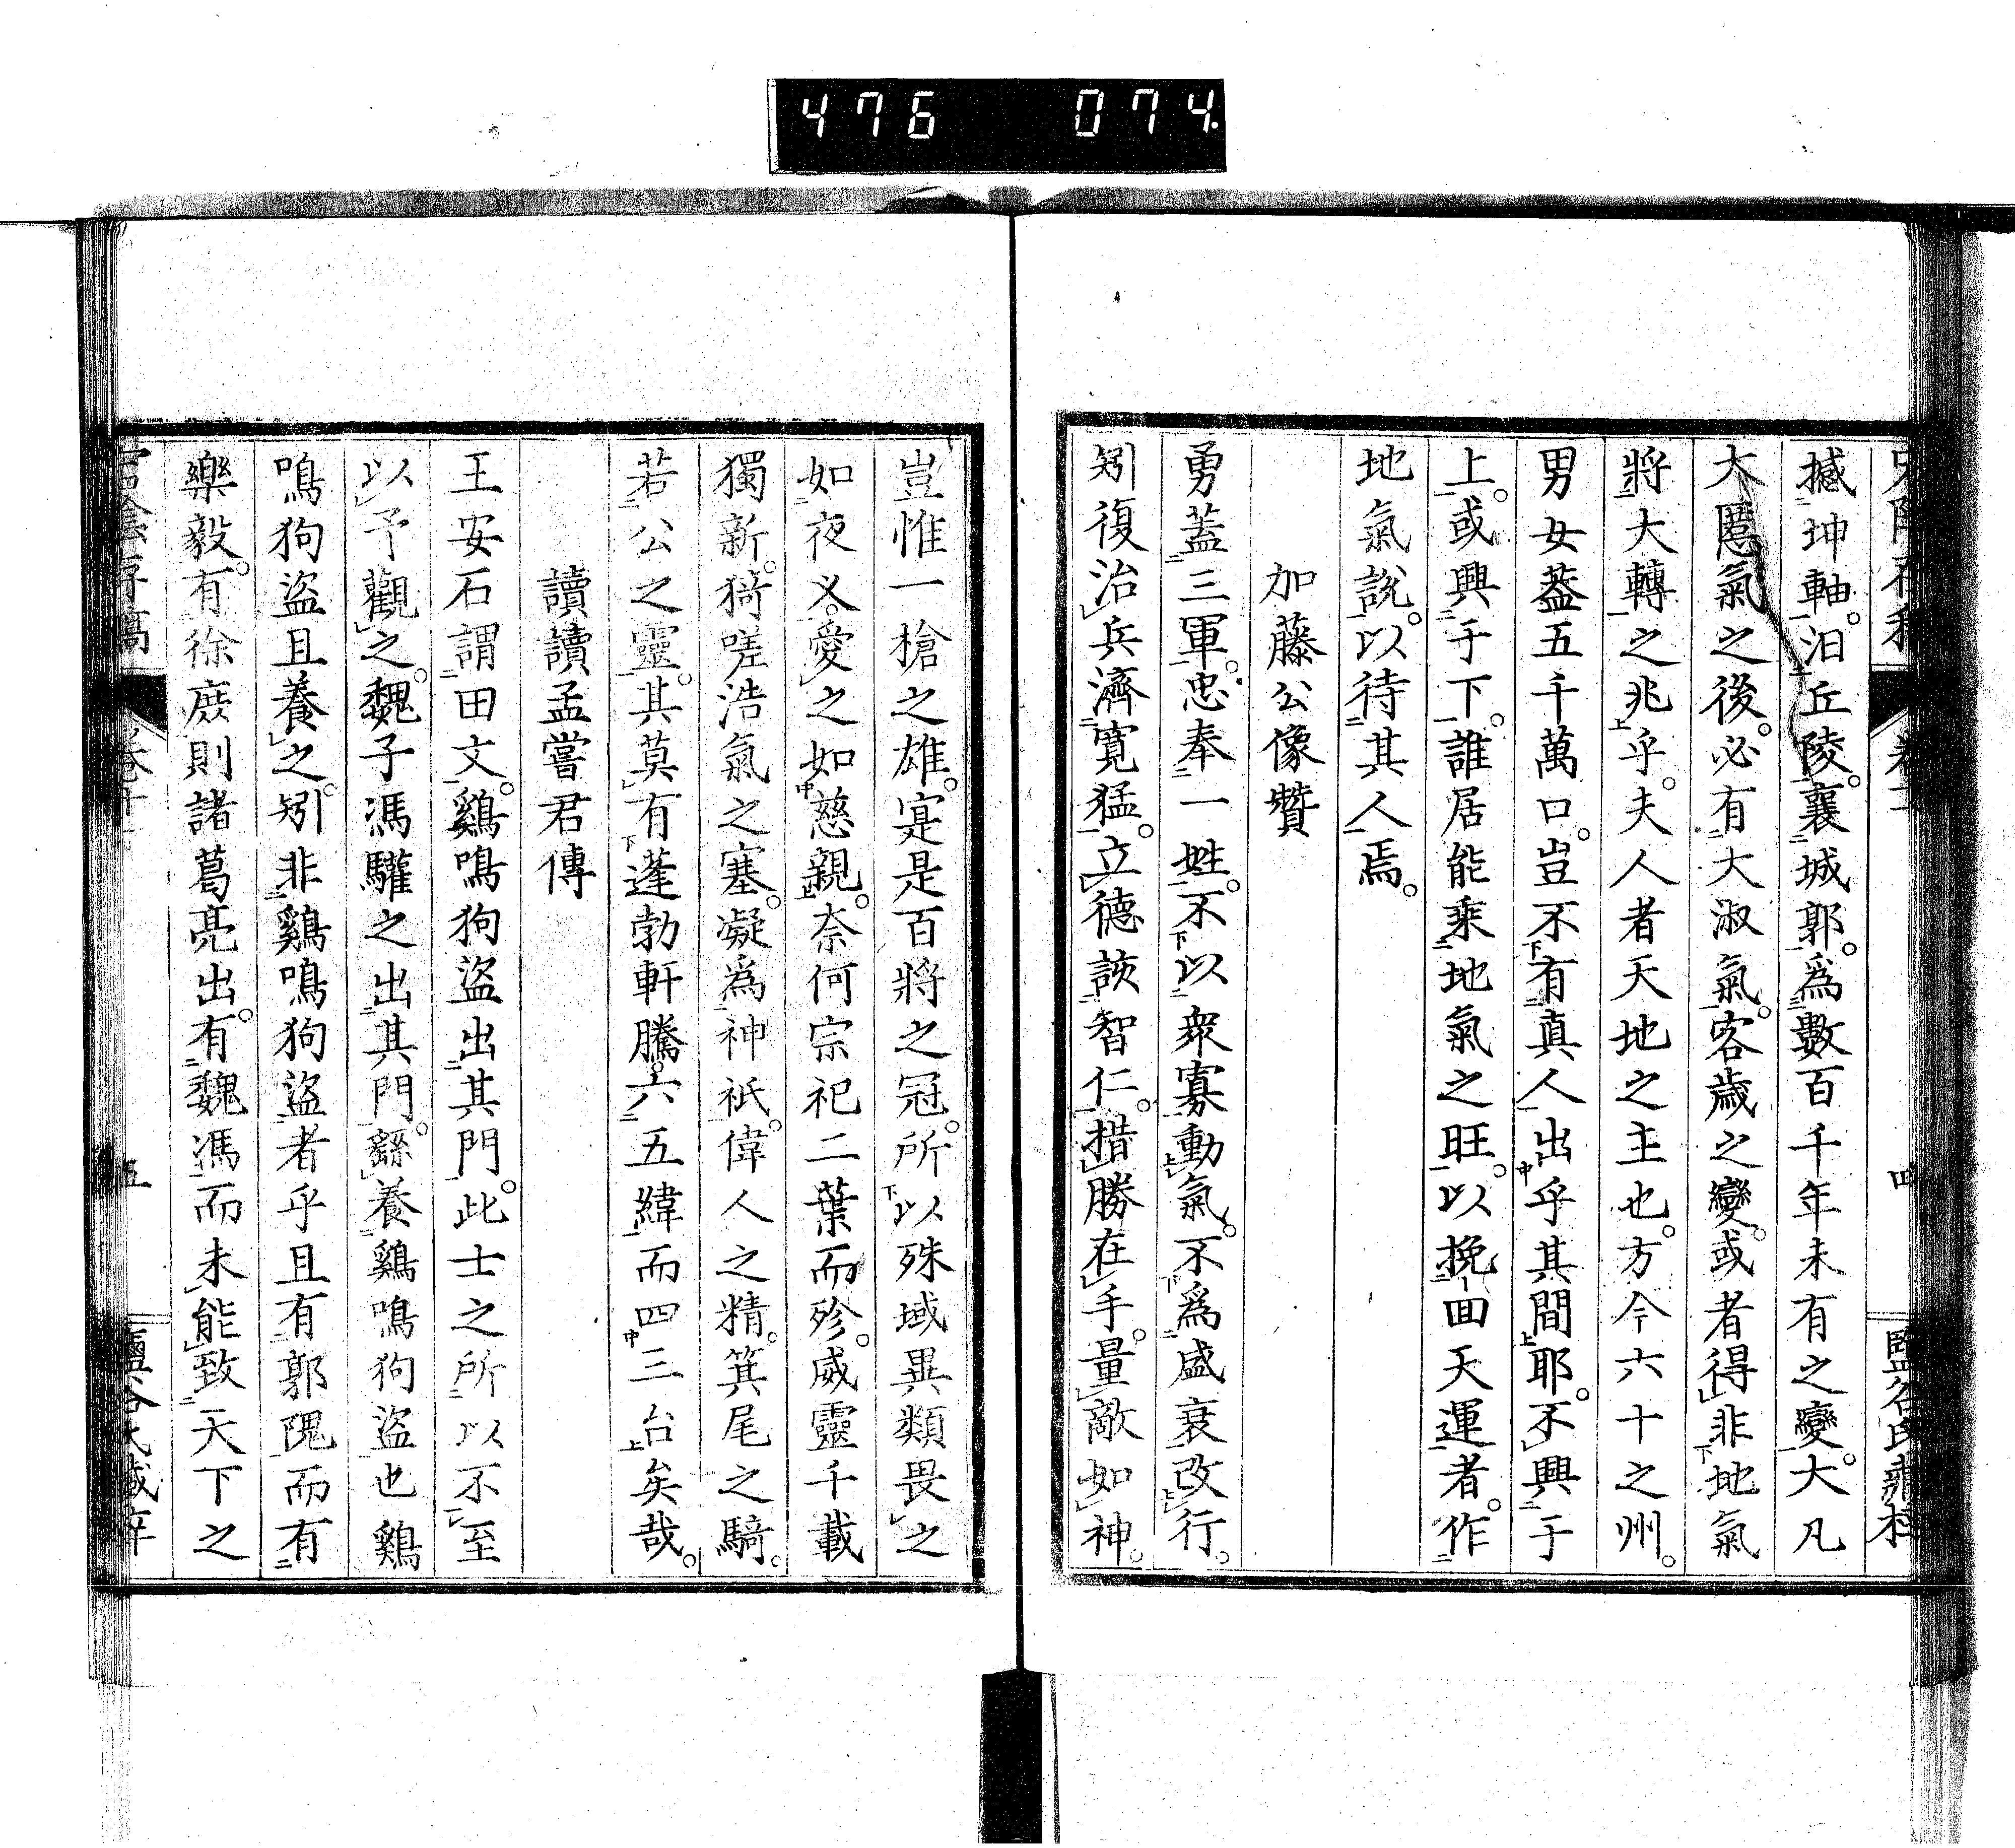 476 074
撼坤軸。汨丘陵。襄城郭。爲數百千年未有之變。大凡
大慝氣之後。必有大淑氣。客歲之變。或者得非地氣
將大轉之兆乎。夫人者天地之主也。方今六十之州。
男女葢五千萬口。豈不有真人出乎其間耶。不興于
上。或興于下。誰居能乘地氣之旺。以挽回天運者。作
地氣說。以待其人焉。
加藤公像贊
勇蓋三軍。忠奉一姓。不以衆寡動氣。不爲盛衰改行。
矧復治兵濟寬猛。立德該智仁。措勝在手。量敵如神。
豈惟一槍之雄。寔是百將之冠。所以殊域異類畏之
如夜叉。愛之如慈親。奈何宗祀二葉而殄。威靈千載
獨新。猗嗟浩氣之塞。凝爲神祇。偉人之精。箕尾之騎。
若公之靈。其莫有蓬勃軒騰。六五緯而四三台矣哉。
讀讀孟嘗君傳
王安石謂田文。鷄鳴狗盜出其門。此士之所以不至
以予觀之。魏子馮驩之出其門。繇養鷄鳴狗盜也鷄
鳴狗盜且養之。矧非鷄鳴狗盜者乎且有郭隗而有
樂毅。有徐庶則諸葛亮出。有魏馮而未能致天下之